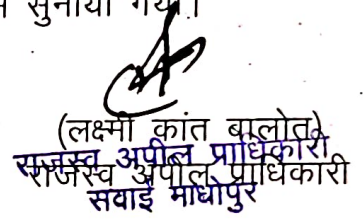 सुनाया गया।
(लक्ष्मी कांत बालोत)
राजस्व अपील प्राधिकारी
राजस्व अपील प्राधिकारी
सवाई माधोपुर